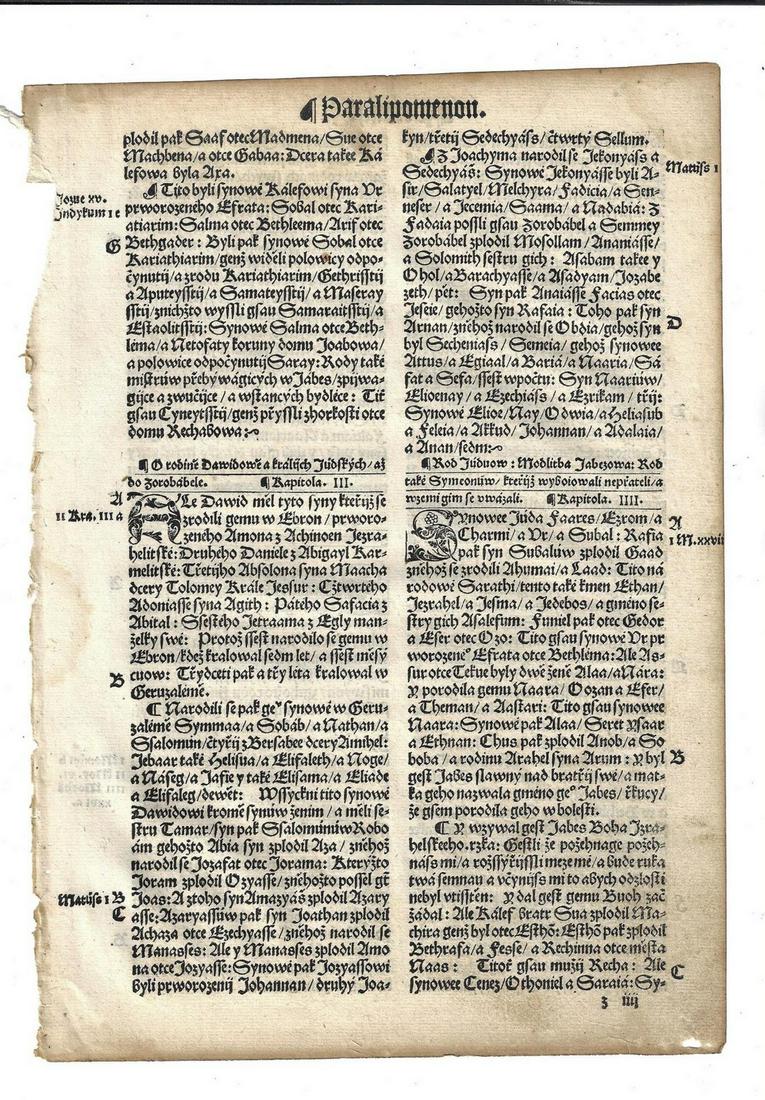 ¶ Paralipomenon.
plodil pak Saaf otec Madmena / Sue otce
Machbena / a otce Gabaa: Dcera takee Ka
lefowa byla Axa.
¶ Tito byli synowé Kálefowi syna Ur
prworozeného Efrata: Sobal otec Kari-
atiarim: Salma otec Bethleema / Arif otec
Bethgader: Byli pak synowé Sobal otce
Kariathiarim / genž widěli polowicy odpo-
čynutij / a zrodu Kariathiarim / Gethrisstij
a Aputeysstij / a Samateysstij / a Maseray
sstij / znichžto wyssli gsau Samaraitsstij / a
Estaolitsstij: Synowé Salma otce Beth-
léma / a Netofaty koruny domu Joabowa /
a polowice odpočynutij Saray: Rody také
mistruow přebywagicých w Jabes / zpijwa-
gijce a zwučijce / a wstancých bydléce: Tiť
gsau Cyneytsstij / genž přyssli zhorkosti otce
domu Rechabowa:
Jozue xv.
Judykum 1 e
G
¶ O rodině Dawidowě a králijch Judských / až
do Zorobábele. ¶ Kapitola. III.
A
II Kra. III a
ALe Dawid měl tyto syny kteřijž se
zrodili gemu w Ebron / prworo-
zeného Amona z Achinoen Jezra-
helitské: Druhého Daniele z Abigayl Kar-
melitské: Třetijho Absolona syna Maacha
dcery Tolomey Krále Jessur: Cžtwrtého
Adoniasse syna Agith: Pátého Safacia z
Abital: Ssestého Jetraama z Egly man-
želky swé: Protož ssest narodilo se gemu w
Ebron / kdež kralowal sedm let / a ssest měsý
cuow: Třydceti pak a try léta kralowal w
Geruzalémě.
B
¶ Narodili se pak geº synowé w Geru-
zalémě Symmaa / a Sobáb / a Nathan / a
Ssalomun / čtyřij z Bersabee dcery Amihel:
Jebaar také Helisua / a Elifaleth / a Noge /
a Náfeg / a Jafie y také Elisama / a Eliade
a Elifaleg / dewět: Wssyckni tito synowé
Dawidowi kromě synuw ženim / a měli se-
stru Tamar / syn pak Ssalomunuw Robo
ám gehožto Abia syn zplodil Aza / zněhož
narodil se Jozafat otec Jorama: Kterýžto
Joram zplodil Ozyasse / zněhožto possel gt
Joas: A ztoho syn Amazyáš zplodil Azary
asse: Azaryassuw pak syn Joathan zplodil
Achaza otce Ezechyasse / zněhož narodil se
Manasses: Ale y Manasses zplodil Amo
na otce Jozyasse: Synowé pak Jozyassowi
byli prworozenij Johannan / druhý Joa-
Matúss 1 B
C
kyn / třetij Sedechyáss / čtwrtý Sellum.
¶ Z Joachyma narodil se Jekonyáss a
Sedechyáš: Synowé Jekonyásse byli A-
sir / Salatyel / Melchyra / Fadicia / a Sen-
neser / a Jecemia / Saama / a Nadabia: Z
Fadaia possli gsau Zorobábel a Semmey
Zorobábel zplodil Mosollam / Ananiásse /
a Solomith sestru gich: Asabam takee y
Ohol / a Barachyasse / a Asadyam / Jozabe
zeth / pět: Syn pak Anaiásse Facias otec
Jeseie / gehožto syn Rafaia: Toho pak syn
Arnan / zněhož narodil se Obdia / gehož syn
byl Secheniass / Semeia / gehož synowee
Attus / a Egiaal / a Bariá / a Naaria / Sá
fat a Sefa / ssest wpočtu: Syn Naariúw /
Elioenay / a Ezechiáss / a Ezrikam / třij:
Synowé Elioe / Nay / Odwia / a Heliasub
a Feleia / a Akkud / Johannan / a Adalaia /
a Anan / sedm:
Matúss 1
D
¶ Rod Júduow: Modlitba Jabezowa: Rod
také Symeonúw / kteřijž wybojowali nepřáteli / a
wzemi gim se uwázali. ¶ Kapitola. IIII.
A
1 M. xxvii
SYnowee Júda Faares / Ezrom / a
Charmi / a Ur / a Subal: Rafia
pak syn Subalúw zplodil Gaad
zněhož se zrodili Ahumai / a Laad: Tito ná
rodowé Sarathi / tento také kmen Ethan /
Jezrahel / a Jesma / a Jedebos / a gméno se-
stry gich Asalefum: Funiel pak otec Gedor
a Eser otec Ozo: Tito gsau synowé Ur pr
worozeneº Efrata otce Bethléma: Ale As-
sur otce Tekue byly dwě ženě Alaa / a Nára:
y porodila gemu Naara / Oozan a Efer /
a Theman / a Aastari: Tito gsau synowee
Naara: Synowé pak Alaa / Seret ysaar
a Ethnan: Chus pak zplodil Anob / a So
boba / a rodinu Arahel syna Arum: y byl
gest Jabes slawný nad bratřij swé / a mat-
ka geho nazwala gméno geº Jabes / řkucy /
že gsem porodila geho w bolesti.
B
¶ y wzýwal gest Jabes Boha Jzra-
helskeeho.rzka: Gestli že požehnage požeh-
náss mi / a rozssýřijssli meze mé / a bude ruka
twá semnau / a včynijss mi to abych odzlosti
nebyl utisstěn: y dal gest gemu Buoh zač
žádal: Ale Kálef bratr Sua zplodil Ma-
chira genž byl otec Esthō: Esthō pak zplodil
Bethrafa / a Fesse / a Rechinna otce města
Naas: Titoť gsau mužij Recha: Ale
synowee Cenez / Othoniel a Saraiá: Sy-
C
z iiij